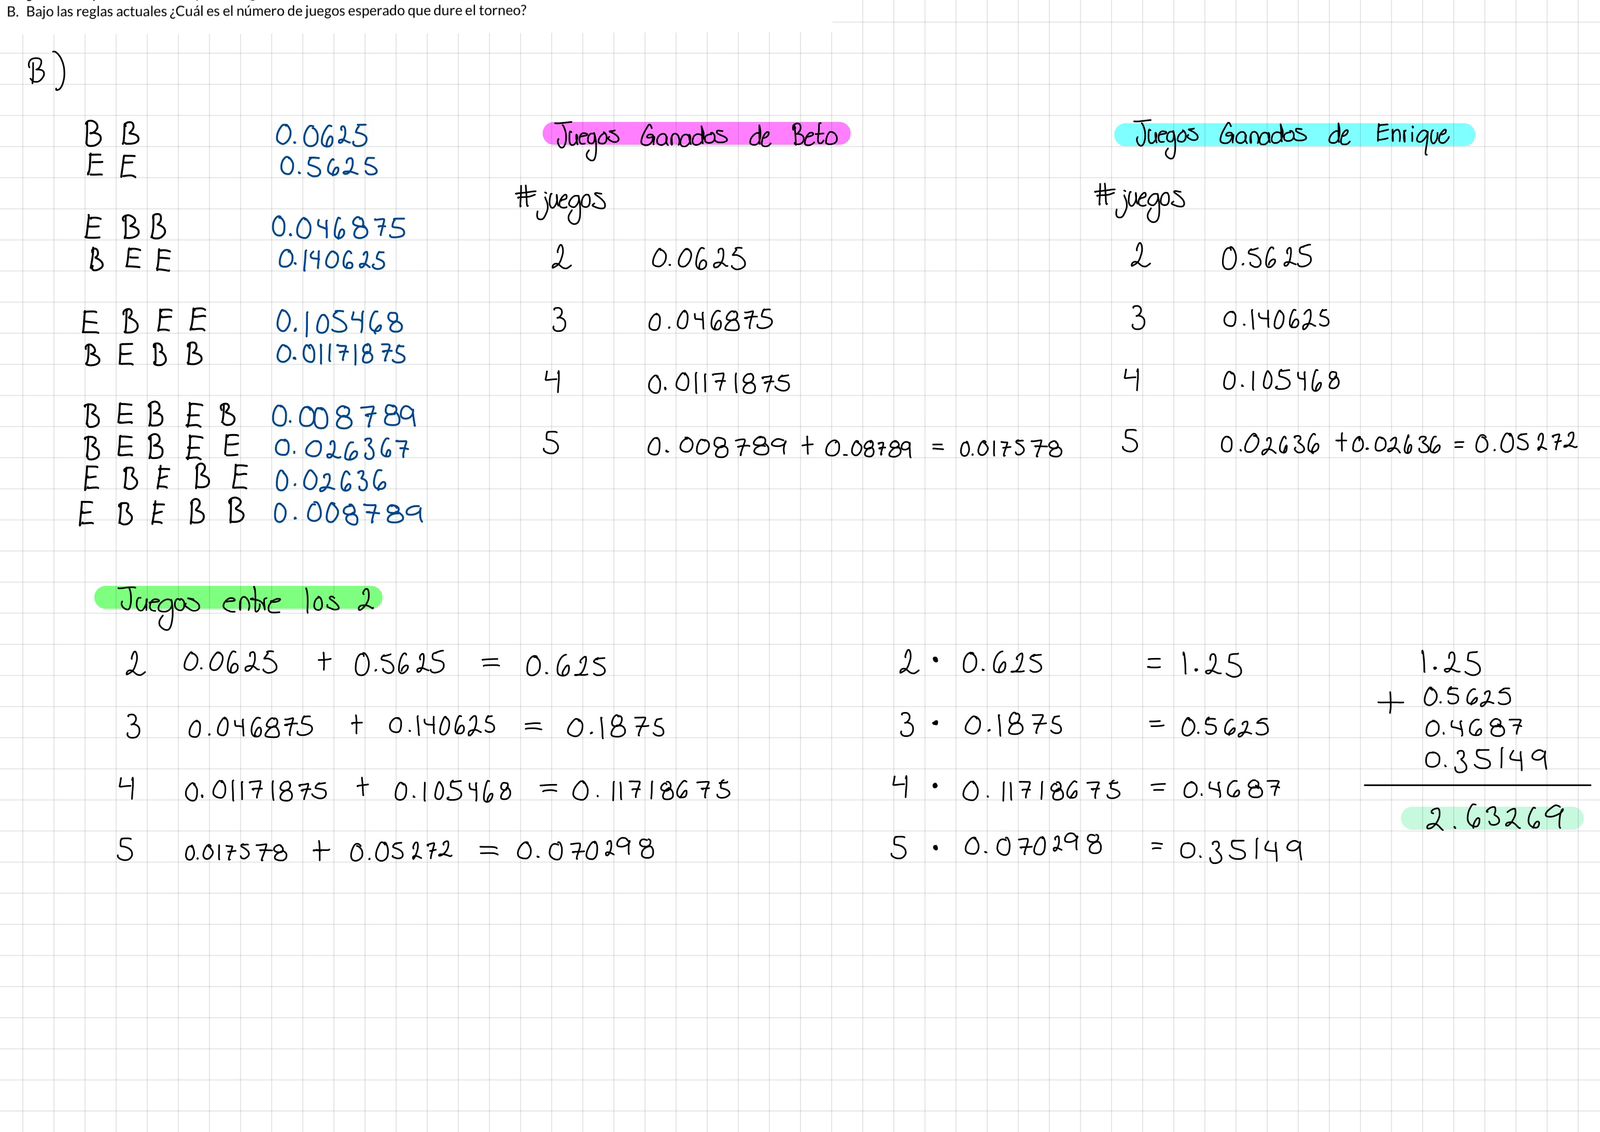 B. Bajo las reglas actuales ¿Cuál es el número de juegos esperado que dure el torneo?
B)
B B 0.0625
E E 0.5625
E B B 0.046875
B E E 0.140625
E B E E 0.105468
B E B B 0.01171875
B E B E B 0.008789
B E B E E 0.026367
E B E B E 0.02636
E B E B B 0.008789
Juegos Ganados de Beto
# juegos
2 0.0625
3 0.046875
4 0.01171875
5 0.008789 + 0.08789 = 0.017578
Juegos Ganados de Enrique
# juegos
2 0.5625
3 0.140625
4 0.105468
5 0.02636 + 0.02636 = 0.05272
Juegos entre los 2
2 0.0625 + 0.5625 = 0.625
3 0.046875 + 0.140625 = 0.1875
4 0.01171875 + 0.105468 = 0.11718675
5 0.017578 + 0.05272 = 0.070298
2 · 0.625 = 1.25
3 · 0.1875 = 0.5625
4 · 0.11718675 = 0.4687
5 · 0.070298 = 0.35149
1.25
+ 0.5625
0.4687
0.35149
2.63269